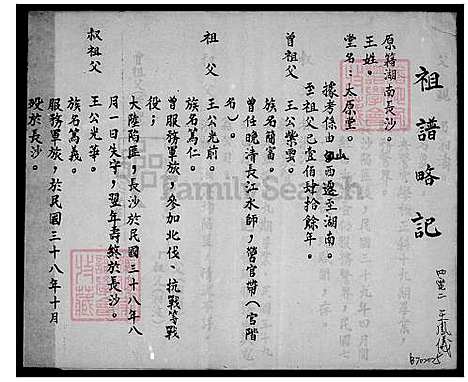 祖譜略記
四 二 王鳳儀
B70225
原籍湖南長沙。
王姓。
堂名：太原堂。
據考係由山西遷至湖南。
至祖父已壹佰肆拾餘年。
曾祖父
王公紫雲。
族名簡富。
曾任晚清長江水師，管官帶（官階
名）。
祖父
王公光前。
族名篤仁。
曾服務軍旅，參加北伐、抗戰等戰
役；
大陸陷匪，長沙於民國三十八年八
月一日失守，翌年壽終於長沙。
叔祖父
王公光華。
族名篤義。
服務軍旅，於民國三十八年十月
歿於長沙。
FamilySearch